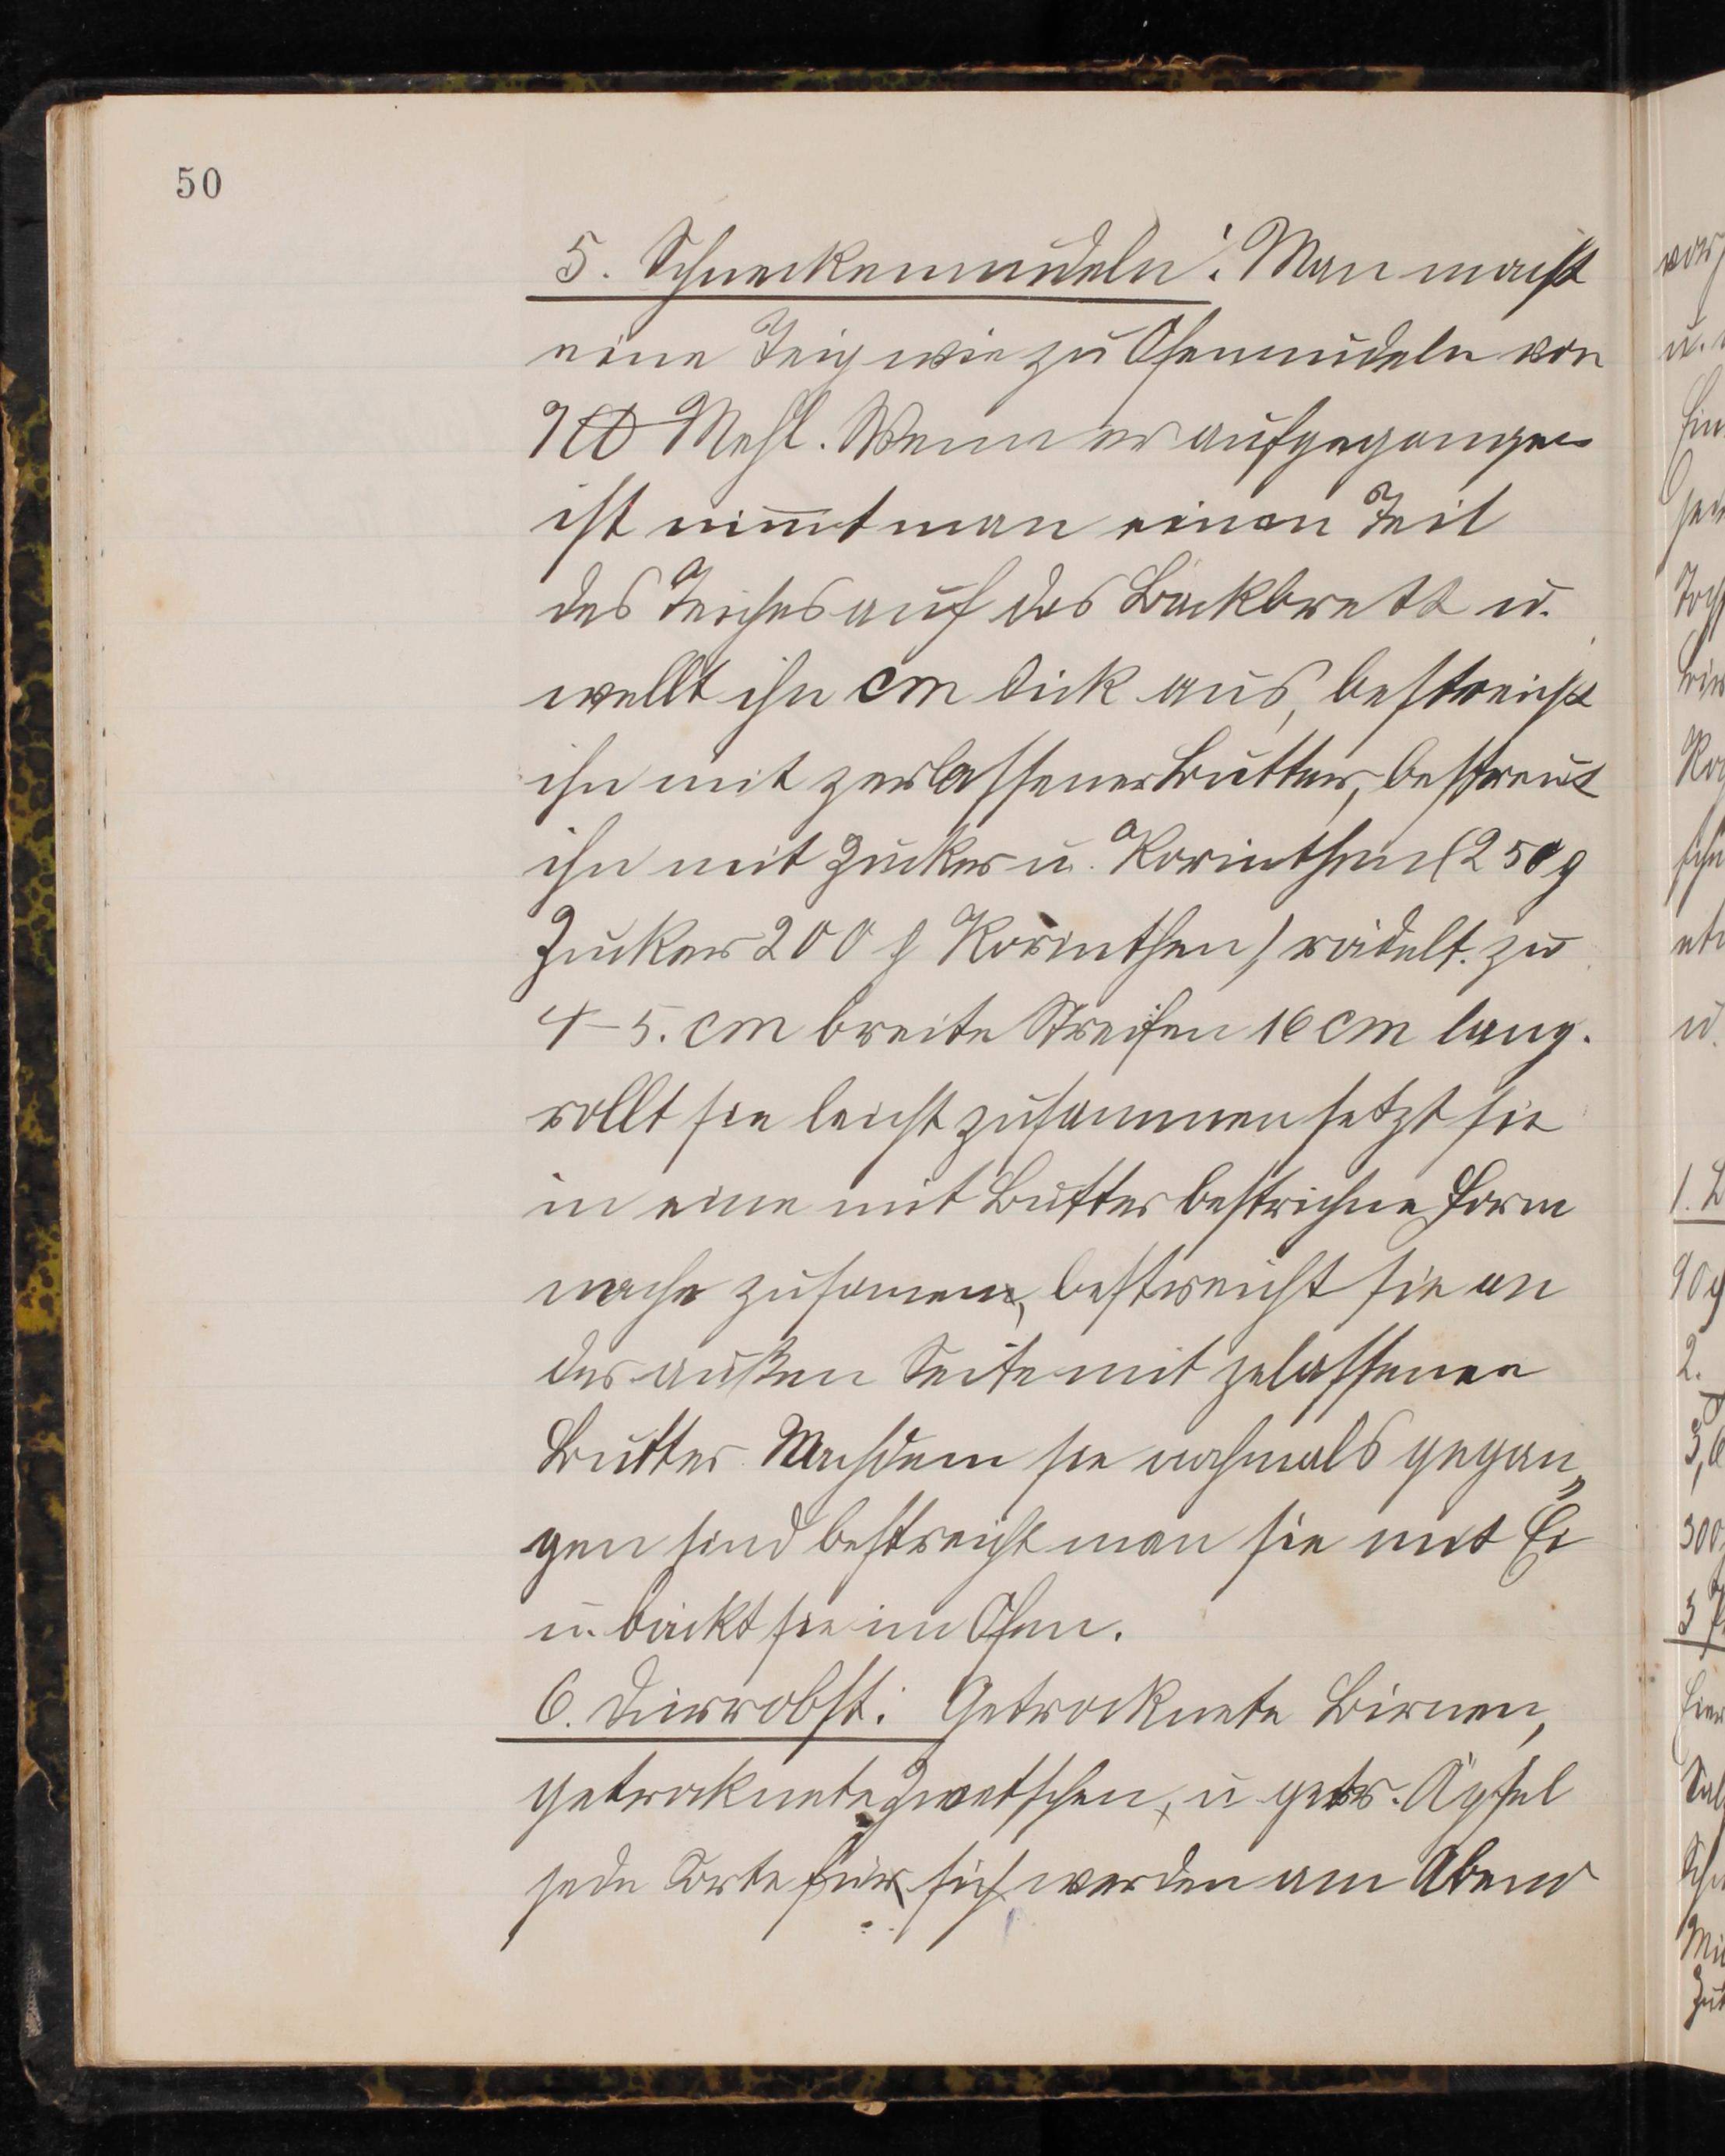 50
5. Schneckennudeln: Man macht
eine Teig wie zu Ofennudeln von
Mehl. Wenn er aufgegangen
ist nim̅t man einen Teil
des Teiches auf das Backbrett u.
wellt ihn cm dick aus, bestreicht
ihn mit zerlassener Butter, bestreut
ihn mit Zucker u. Korinthen (250 g
Zucker 200 g Korinthen) rädelt. zu
4–5. cm breite Streifen 16 cm lang.
rollt sie leicht zusammen setzt sie
in eine mit Butter bestrichne Form
nache zusamen, bestreicht sie an
der außen Seite mit zelassenen
Butter. Nachdem sie nochmals gegan„
gen sind bestreicht man sie mit Ei
u. bäckt sie im Ofen.
6. Dürrobst: Getrocknete Birnen,
getrocknete Zwetschen, u getr. Äpfel
jede Sorte für sich werden am Abend